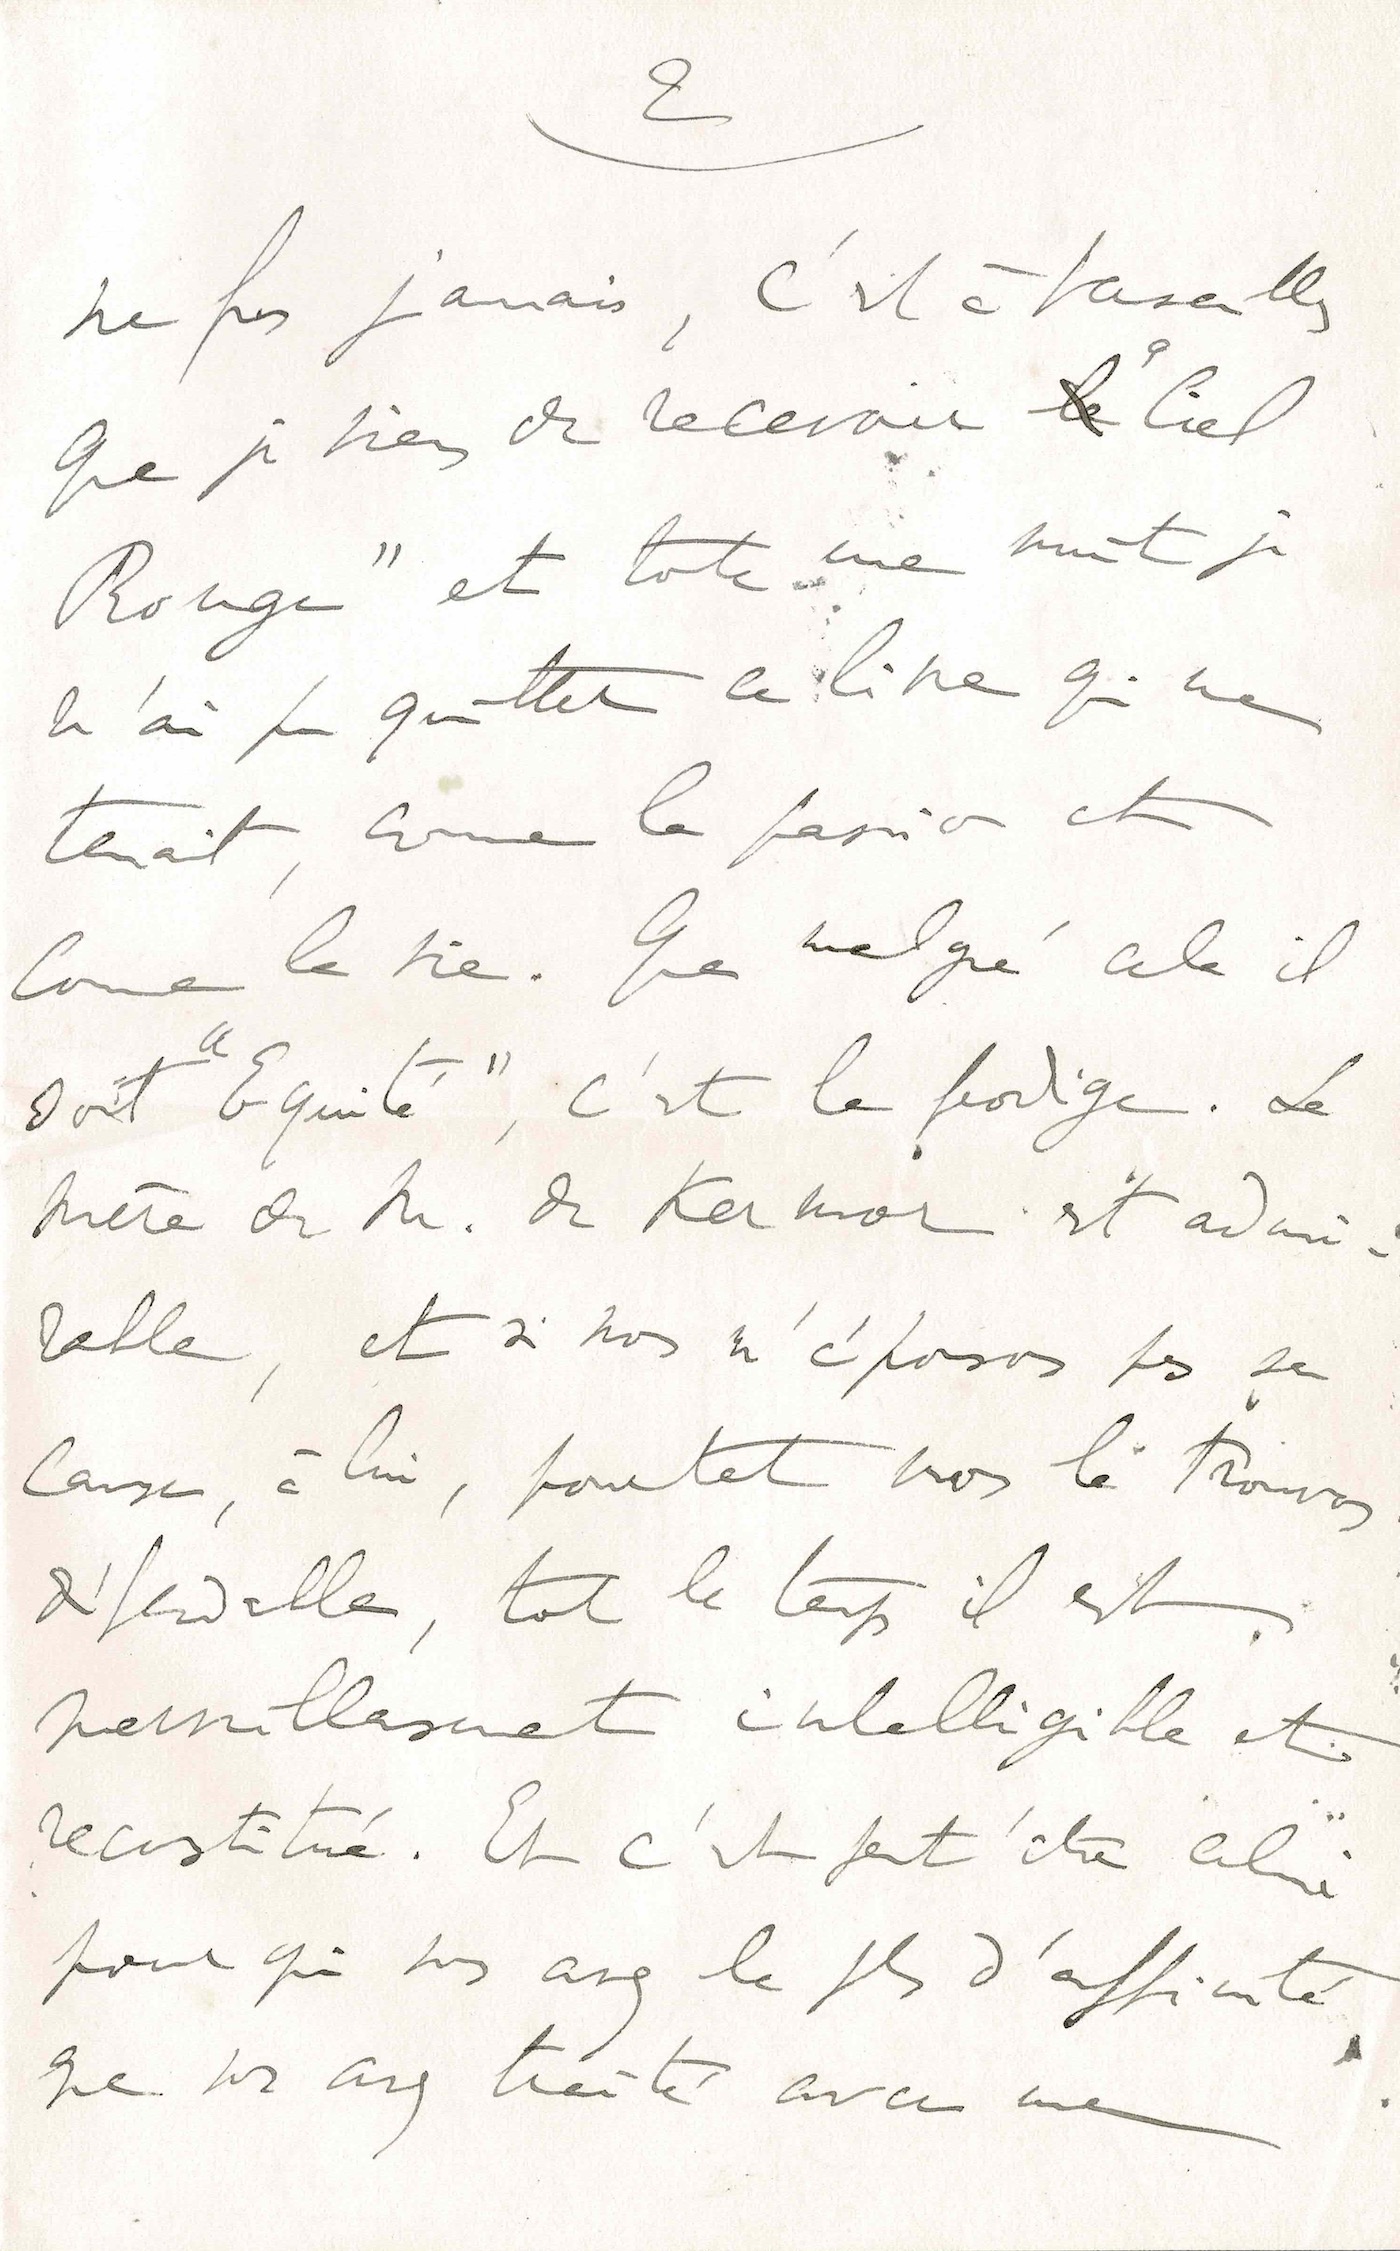 2
ne fus jamais, c'est à Versailles
que je viens de recevoir le "Ciel
Rouge" et toute une nuit je
n'ai pu quitter ce livre qui me
tenait, comme la passion et
comme la vie. Que malgré cela il
soit "Equité", c'est le prodige. La
mère de M. de Kermor est admi-
rable, et si nous n'épousons pas sa
cause, à lui, pourtant nous la trouvons
défendable, tout le temps il est
merveilleusement intelligible et
reconstitué. Et c'est peut'être celui
pour qui vous avez le plus d'affinité
que vous avez traité avec une